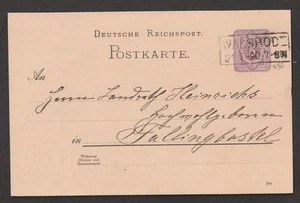 DEUTSCHE REICHSPOST.
POSTKARTE.
WALSRODE
An
Herrn Landrath Heinrichs
Hochwohlgeboren
in Fallingbostel
Wohnung
(Strasse und
Hausnummer)